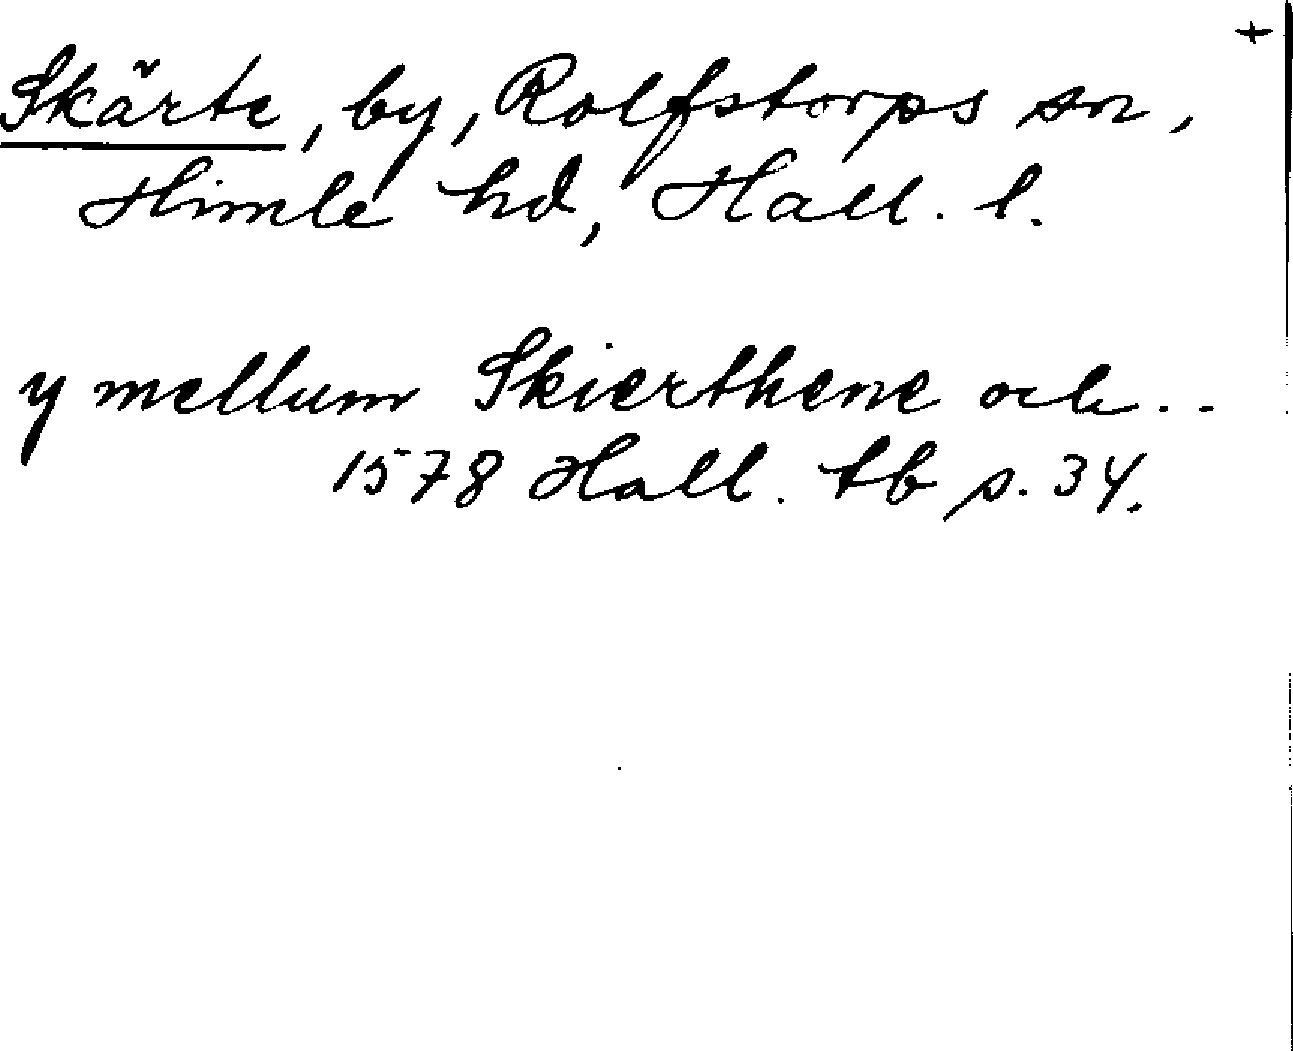 +
Skärte, by, Rolfstorps sn,
Himle hd, Hall. l.
y mellum Skierthene och..
1578 Hall. tb s. 34.